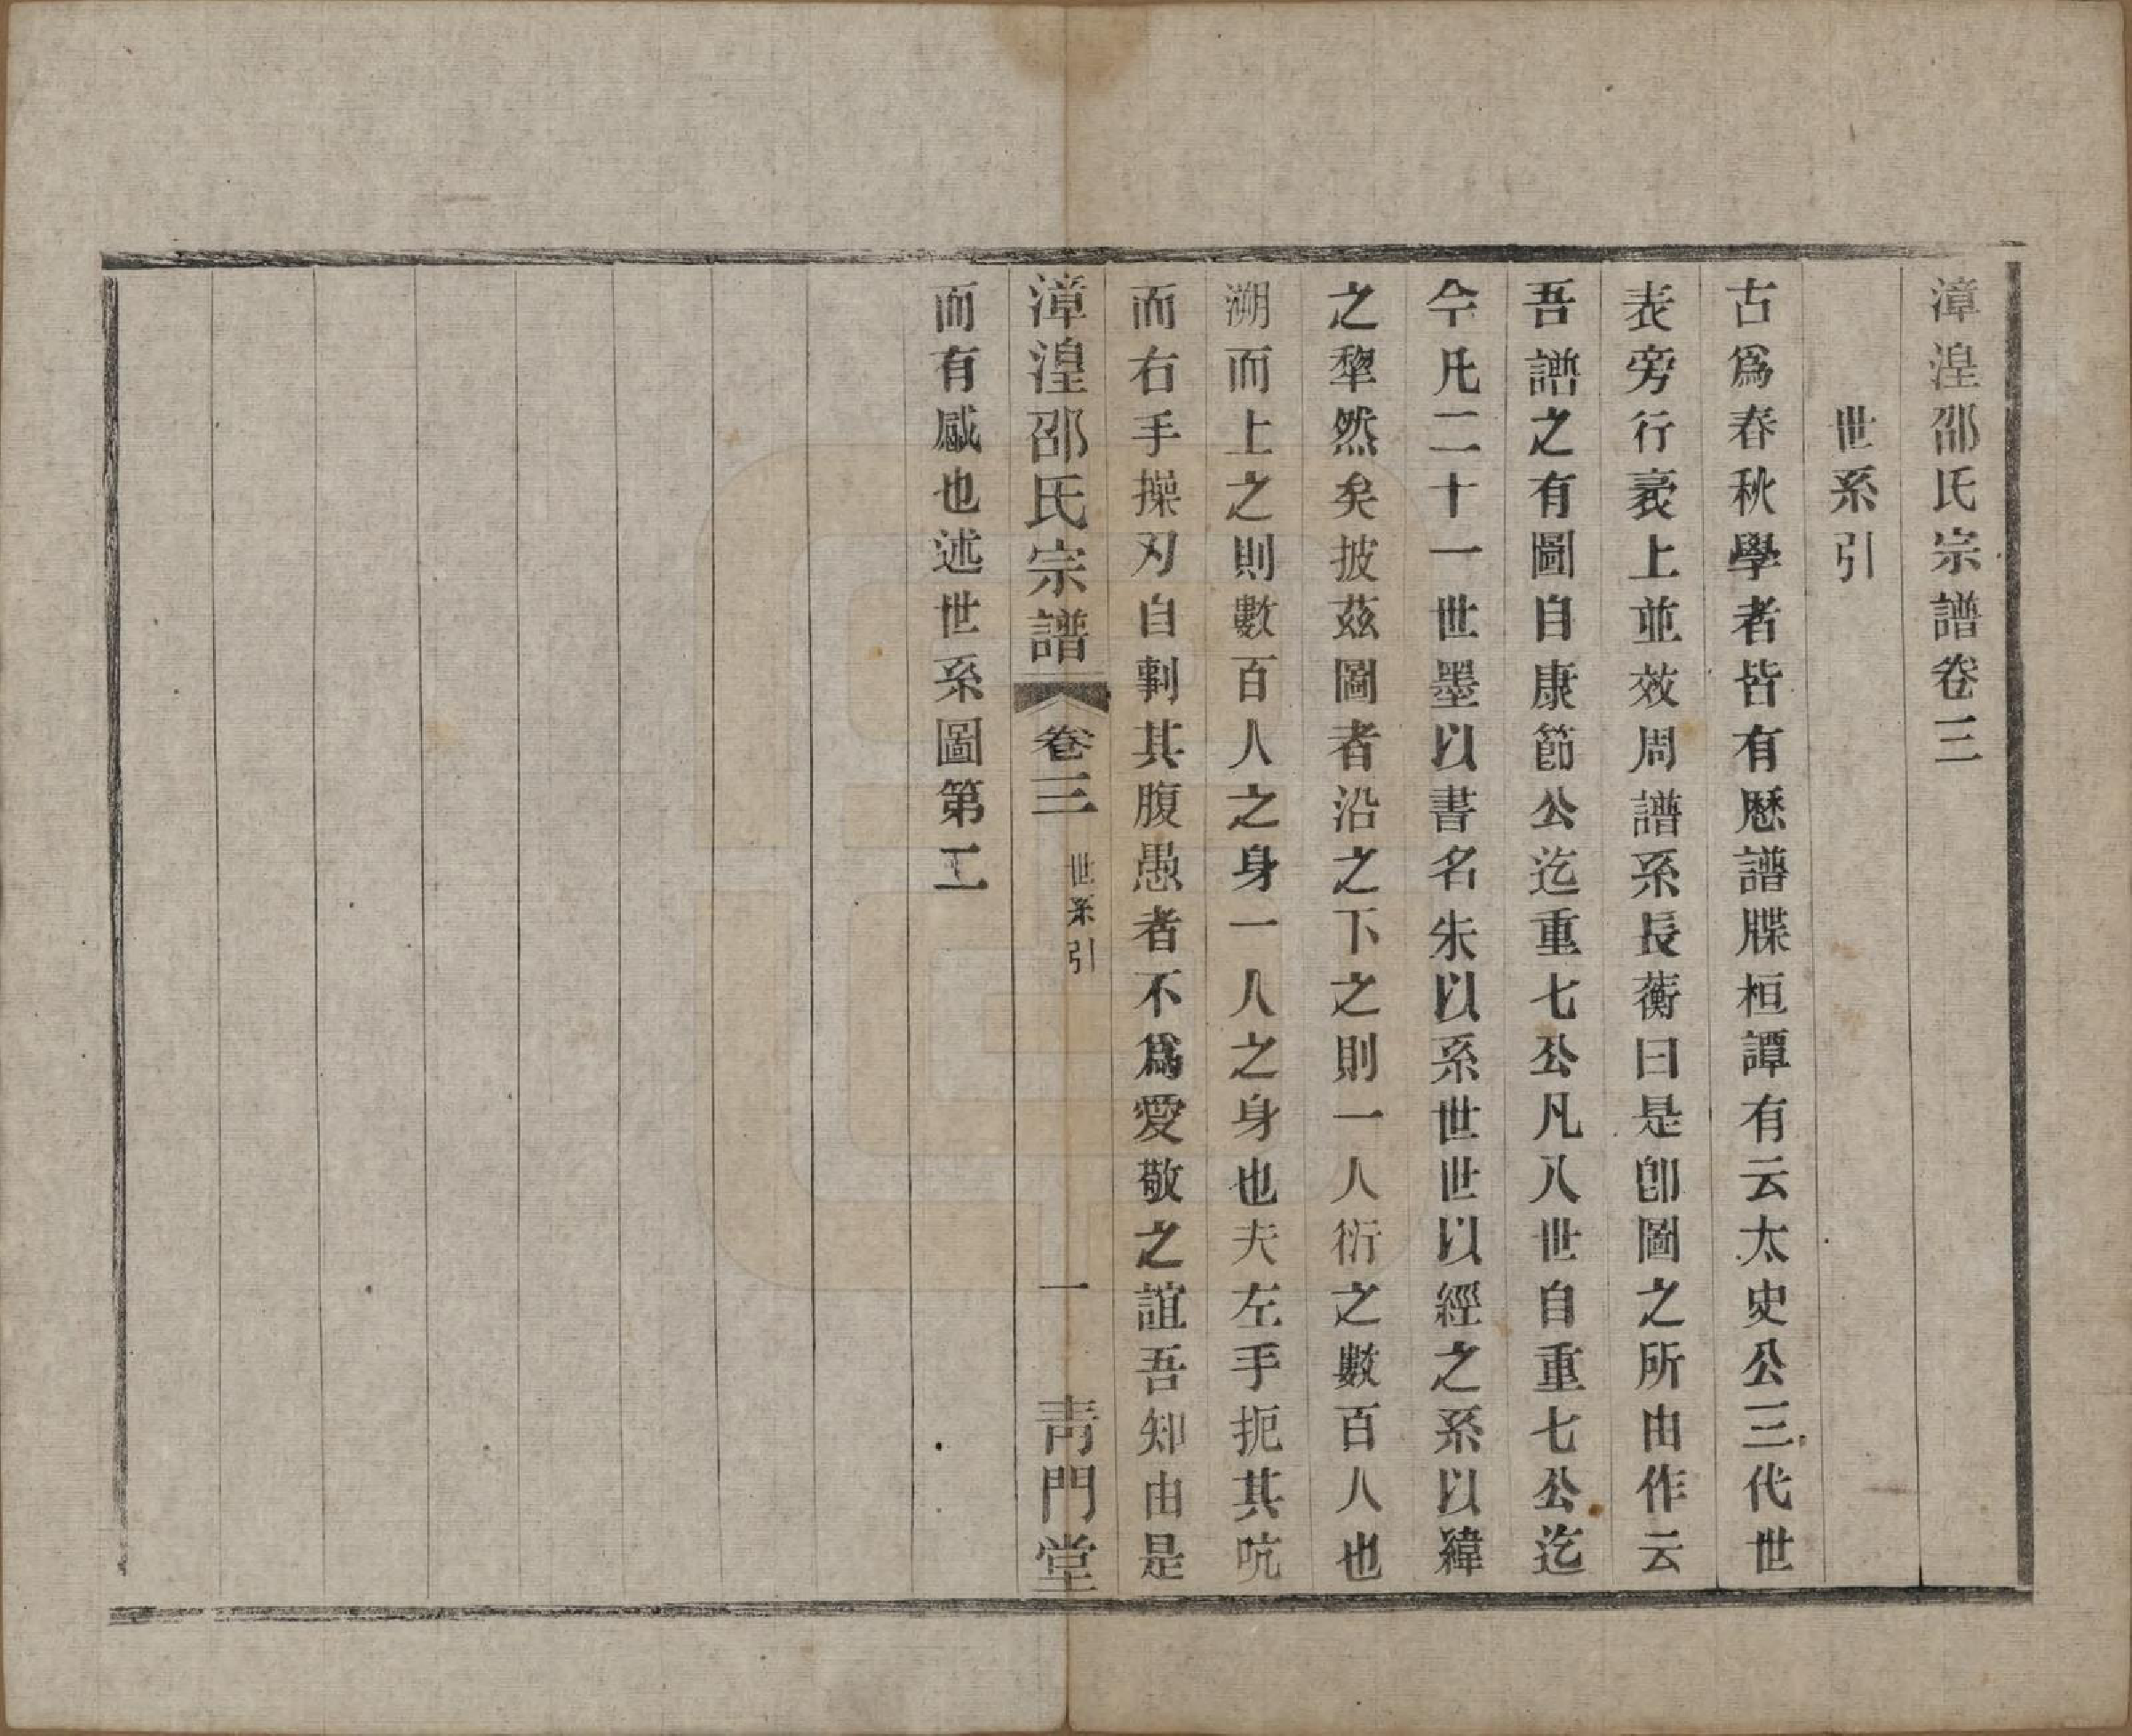 漳湟邵氏宗譜卷三
世系引
古爲春秋學者皆有歷譜牒桓譚有云太史公三代世
表旁行袤上並效周譜系長蘅曰是卽圖之所由作云
吾譜之有圖自康節公迄重七公凡八世自重七公迄
今凡二十一世墨以書名朱以系世世以經之系以緯
之犂然矣披茲圖者沿之下之則一人衍之數百人也
溯而上之則數百人之身一人之身也夫左手扼其吭
而右手操刃自剚其腹愚者不爲愛敬之誼吾知由是
漳湟邵氏宗譜 卷三 世系引 一 青門堂
而有感也述世系圖第二